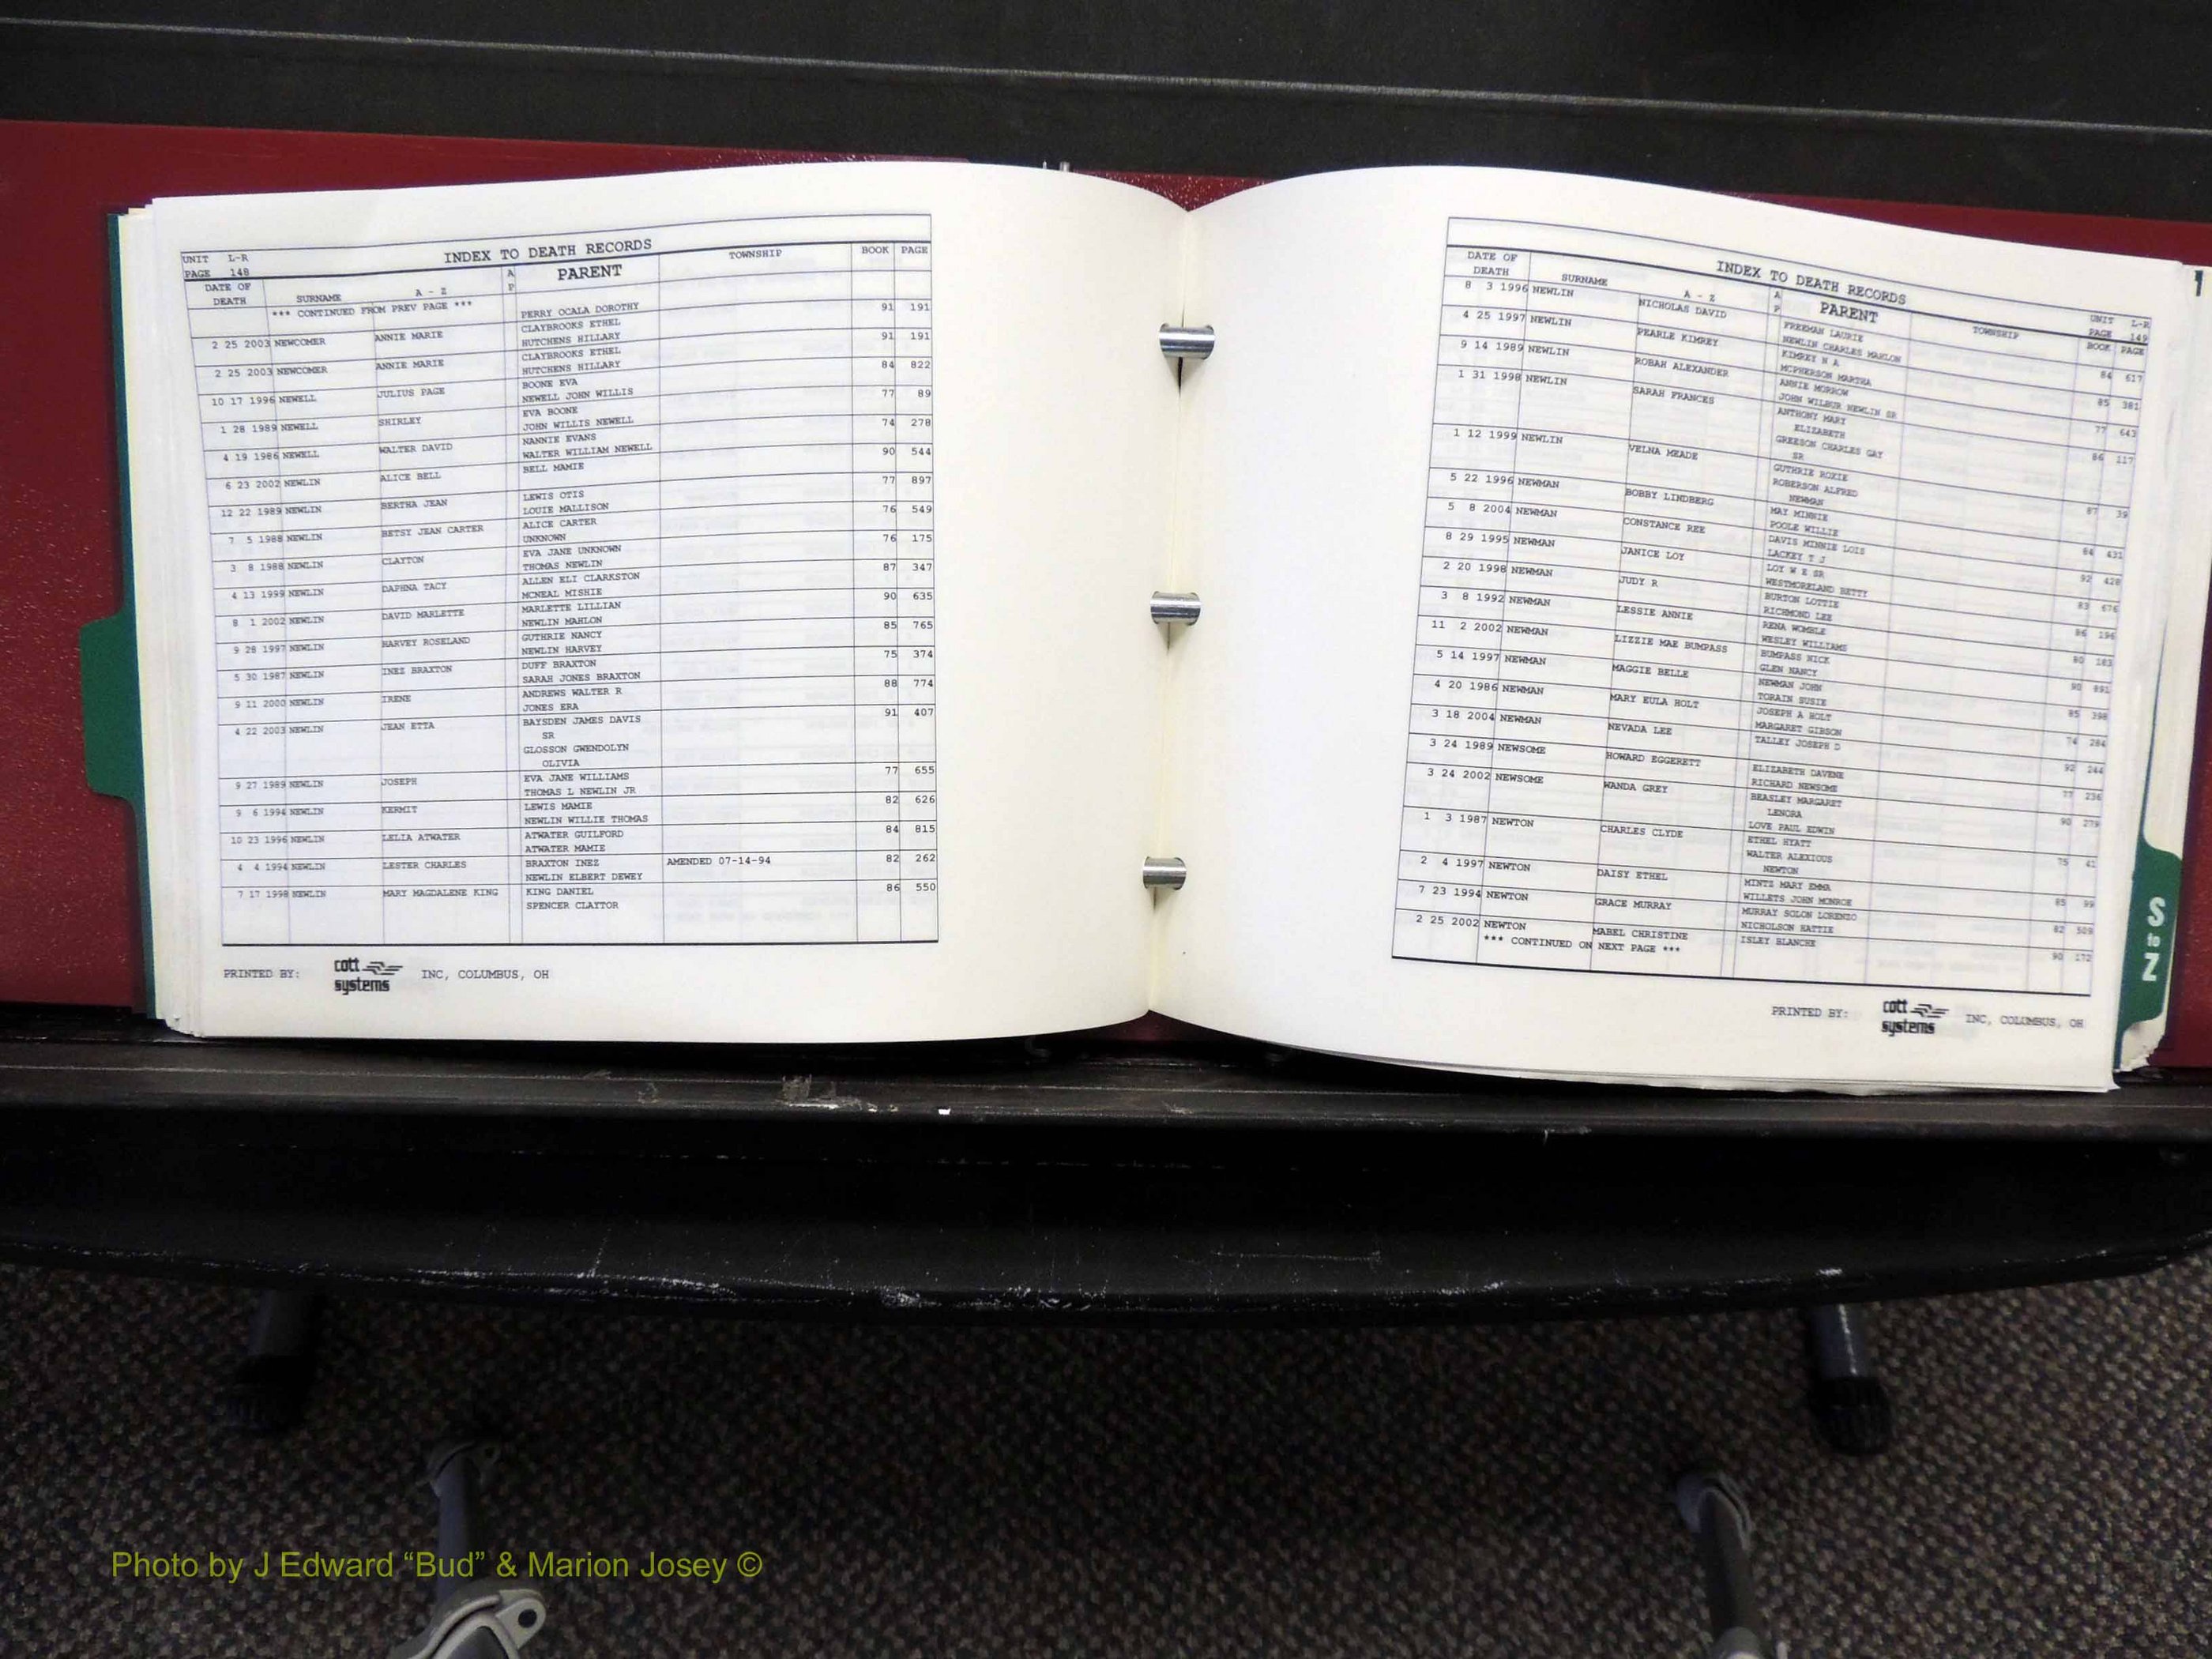 UNIT L-R INDEX TO DEATH RECORDS TOWNSHIP BOOK PAGE
PAGE 148 A PARENT
DATE OF DEATH SURNAME A - Z P
*** CONTINUED FROM PREV PAGE *** PERRY OCALA DOROTHY
2 25 2003 NEWCOMER ANNIE MARIE CLAYBROOKS ETHEL 91 191
HUTCHENS HILLARY
2 25 2003 NEWCOMER ANNIE MARIE CLAYBROOKS ETHEL 91 191
HUTCHENS HILLARY
10 17 1996 NEWELL JULIUS PAGE BOONE EVA 84 822
NEWELL JOHN WILLIS
1 28 1989 NEWELL SHIRLEY EVA BOONE 77 89
JOHN WILLIS NEWELL
4 19 1986 NEWELL WALTER DAVID NANNIE EVANS 74 278
WALTER WILLIAM NEWELL
6 23 2002 NEWLIN ALICE BELL BELL MAMIE 90 544
12 22 1989 NEWLIN BERTHA JEAN LEWIS OTIS 77 897
LOUIE MALLISON
7 5 1988 NEWLIN BETSY JEAN CARTER ALICE CARTER 76 549
UNKNOWN
3 8 1988 NEWLIN CLAYTON EVA JANE UNKNOWN 76 175
THOMAS NEWLIN
4 13 1999 NEWLIN DAPHNA TACY ALLEN ELI CLARKSTON 87 347
MCNEAL MISHIE
8 1 2002 NEWLIN DAVID MARLETTE MARLETTE LILLIAN 90 635
NEWLIN MAHLON
9 28 1997 NEWLIN HARVEY ROSELAND GUTHRIE NANCY 85 765
NEWLIN HARVEY
5 30 1987 NEWLIN INEZ BRAXTON DUFF BRAXTON 75 374
SARAH JONES BRAXTON
9 11 2000 NEWLIN IRENE ANDREWS WALTER R 88 774
JONES ERA
4 22 2003 NEWLIN JEAN ETTA BAYSDEN JAMES DAVIS 91 407
SR
GLOSSON GWENDOLYN
OLIVIA
9 27 1989 NEWLIN JOSEPH EVA JANE WILLIAMS 77 655
THOMAS L NEWLIN JR
9 6 1994 NEWLIN KERMIT LEWIS MAMIE 82 626
NEWLIN WILLIE THOMAS
10 23 1996 NEWLIN LELIA ATWATER ATWATER GUILFORD 84 815
ATWATER MAMIE
4 4 1994 NEWLIN LESTER CHARLES BRAXTON INEZ AMENDED 07-14-94 82 262
NEWLIN ELBERT DEWEY
7 17 1998 NEWLIN MARY MAGDALENE KING KING DANIEL 86 550
SPENCER CLAYTOR
PRINTED BY: cott systems INC, COLUMBUS, OH
INDEX TO DEATH RECORDS UNIT L-R
PAGE 149
DATE OF DEATH SURNAME A - Z A P PARENT TOWNSHIP BOOK PAGE
8 3 1996 NEWLIN NICHOLAS DAVID FREEMAN LAURIE 84 617
NEWLIN CHARLES MAHLON
4 25 1997 NEWLIN PEARLE KIMREY KIMREY N A 85 381
MCPHERSON MARTHA
9 14 1989 NEWLIN ROBAH ALEXANDER ANNIE MORROW 77 643
JOHN WILBUR NEWLIN SR
1 31 1998 NEWLIN SARAH FRANCES ANTHONY MARY 86 117
ELIZABETH
GREESON CHARLES GAY
SR
1 12 1999 NEWLIN VELNA MEADE GUTHRIE ROXIE 87 39
ROBERSON ALFRED
NEWMAN
5 22 1996 NEWMAN BOBBY LINDBERG MAY MINNIE 84 431
POOLE WILLIE
5 8 2004 NEWMAN CONSTANCE REE DAVIS MINNIE LOIS 92 428
LACKEY T J
8 29 1995 NEWMAN JANICE LOY LOY W E SR 83 676
WESTMORELAND BETTY
2 20 1998 NEWMAN JUDY R BURTON LOTTIE 86 196
RICHMOND LEE
3 8 1992 NEWMAN LESSIE ANNIE RENA WOMBLE 80 183
WESLEY WILLIAMS
11 2 2002 NEWMAN LIZZIE MAE BUMPASS BUMPASS NICK 90 891
GLEN NANCY
5 14 1997 NEWMAN MAGGIE BELLE NEWMAN JOHN 85 398
TORAIN SUSIE
4 20 1986 NEWMAN MARY EULA HOLT JOSEPH A HOLT 74 284
MARGARET GIBSON
3 18 2004 NEWMAN NEVADA LEE TALLEY JOSEPH D 92 244
3 24 1989 NEWSOME HOWARD EGGERETT ELIZABETH DAVENE 77 236
RICHARD NEWSOME
3 24 2002 NEWSOME WANDA GREY BEASLEY MARGARET 90 279
LENORA
LOVE PAUL EDWIN
1 3 1987 NEWTON CHARLES CLYDE ETHEL HYATT 75 41
WALTER ALEXIOUS
NEWTON
2 4 1997 NEWTON DAISY ETHEL MINTZ MARY EMMA 85 99
WILLETS JOHN MONROE
7 23 1994 NEWTON GRACE MURRAY MURRAY SOLON LORENZO 82 509
NICHOLSON HATTIE
2 25 2002 NEWTON MABEL CHRISTINE ISLEY BLANCHE 90 172
*** CONTINUED ON NEXT PAGE ***
PRINTED BY: cott systems INC, COLUMBUS, OH
S to Z
Photo by J Edward “Bud” & Marion Josey ©